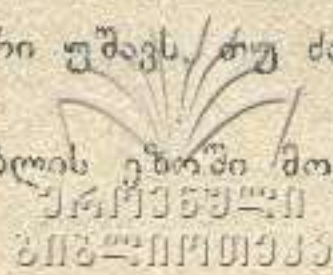 რი უშავს, თუ ძა
ბლის ეზოში მო
ეროვნული
ბიბლიოთეკა